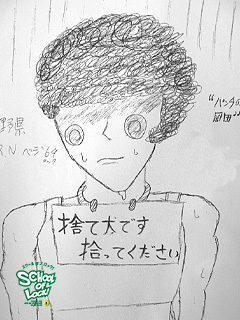 野県
R.N ベジ'64
"パンダの
捨て犬です
拾ってください
SCHOOL
OF
LOCK!